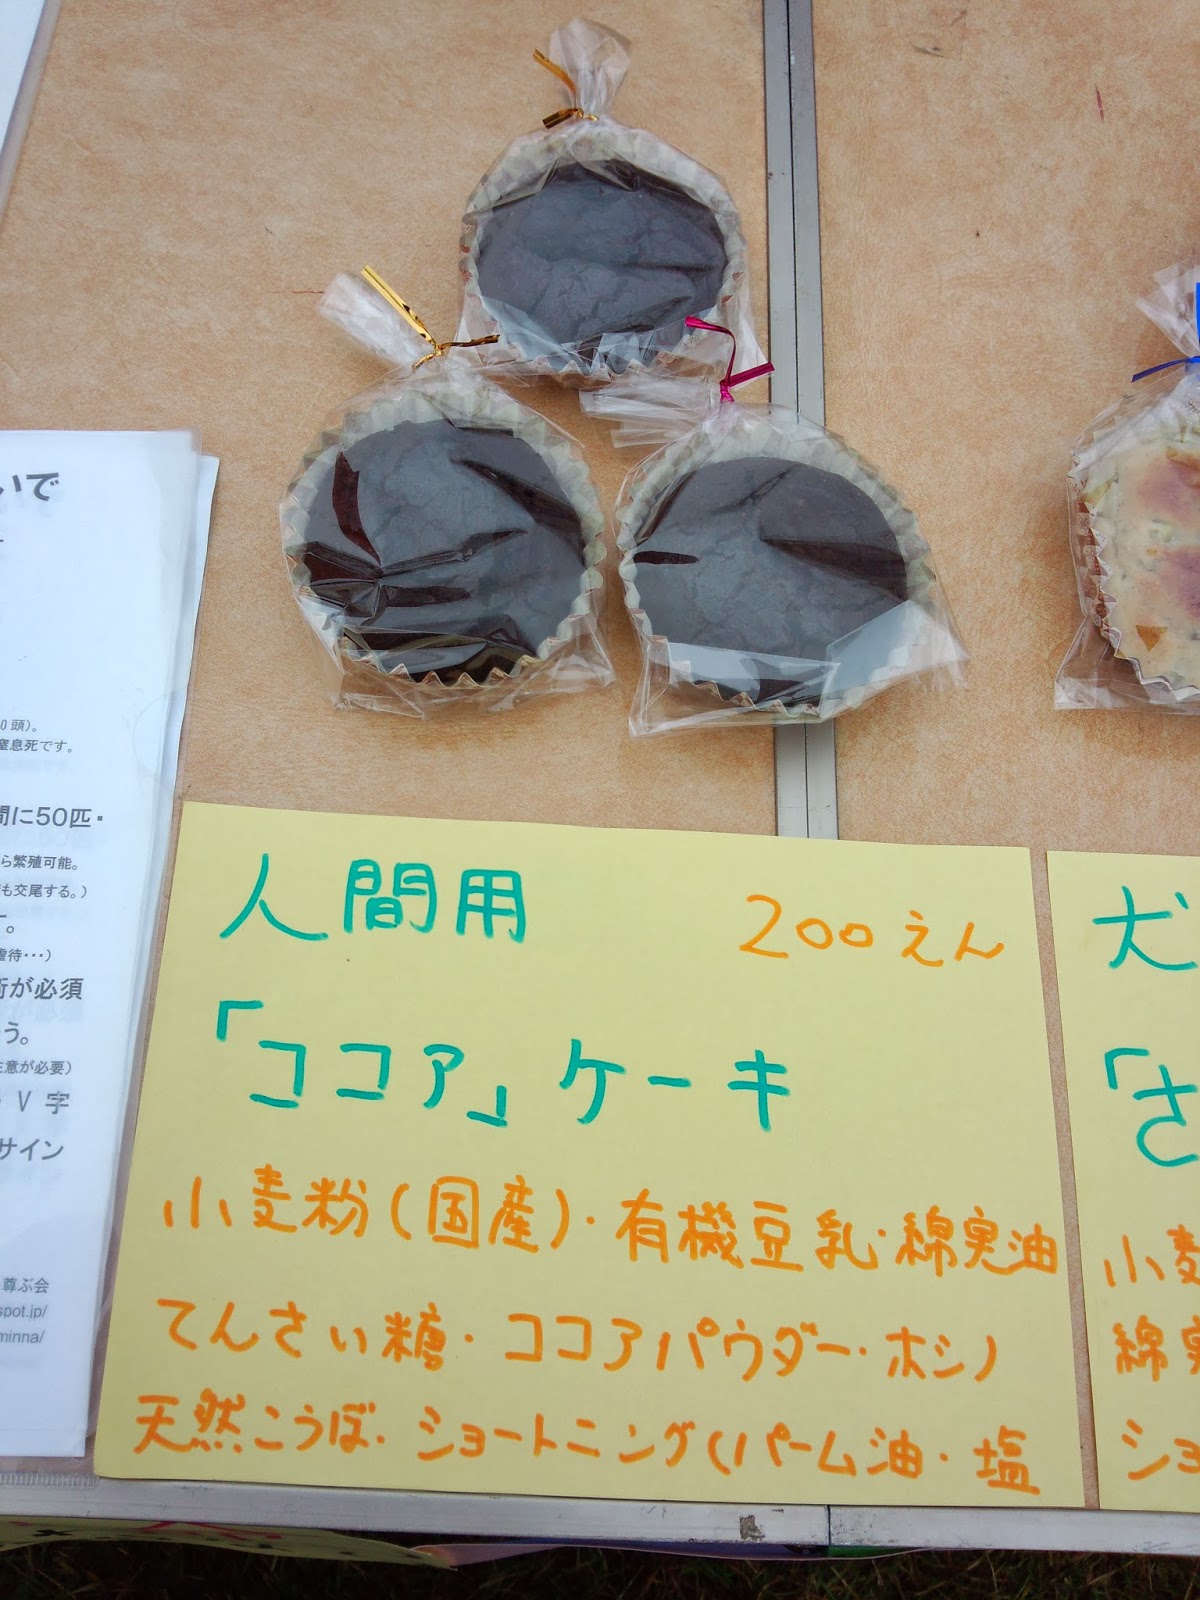 いで
0頭)。
窒息死です。
間に50匹・
ら繁殖可能。
も交尾する。)
す。
虐待・・・)
術が必須
う。
注意が必要)
V字
サイン
尊ぶ会
spot.jp/
minna/
人間用
200えん
「ココア」ケーキ
小麦粉(国産)・有機豆乳・綿実油
てんさい糖・ココアパウダー・ホシノ
天然こうぼ・ショートニング(パーム油・塩
犬
「さ
小麦
綿実
ショ